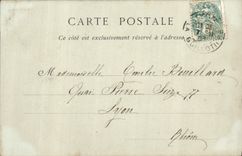 CARTE POSTALE
Ce côté est exclusivement réservé à l'adresse
Mademoiselle Emilie Bouillard
Quai Pierre Scize 77
Lyon
Rhône